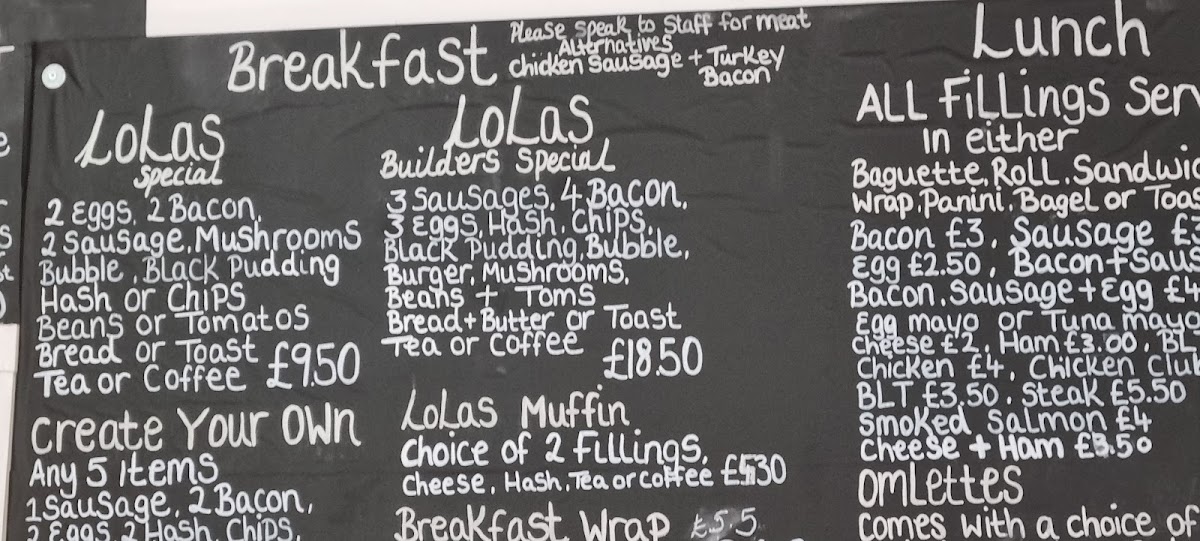 Breakfast
Please speak to staff for meat
Alternatives
chicken sausage + Turkey
Bacon
LoLas
special
2 Eggs, 2 Bacon,
2 Sausage, Mushrooms
Bubble, Black Pudding
Hash or Chips
Beans or Tomatos
Bread or Toast
Tea or Coffee £9.50
Create Your Own
Any 5 Items
1 Sausage, 2 Bacon,
2 Eggs, 2 Hash, Chips,
LoLas
Builders special
3 Sausages, 4 Bacon,
3 Eggs, Hash, Chips,
Black Pudding, Bubble,
Burger, Mushrooms,
Beans + Toms
Bread + Butter or Toast
Tea or Coffee £18.50
LoLas Muffin
Choice of 2 Fillings,
Cheese, Hash, Tea or coffee
Breakfast Wrap
Lunch
ALL Fillings
in either
Baguette, Roll,
Wrap, Panini, Bagel or
Bacon £3, Sausage
Egg £2.50, Bacon +
Bacon, Sausage + Egg £4
Egg mayo or Tuna mayo
Cheese £2, Ham £3.00,
Chicken £4, Chicken Club
BLT £3.50, Steak £5.50
Smoked Salmon £4
Cheese + Ham
Omlettes
comes with a choice of